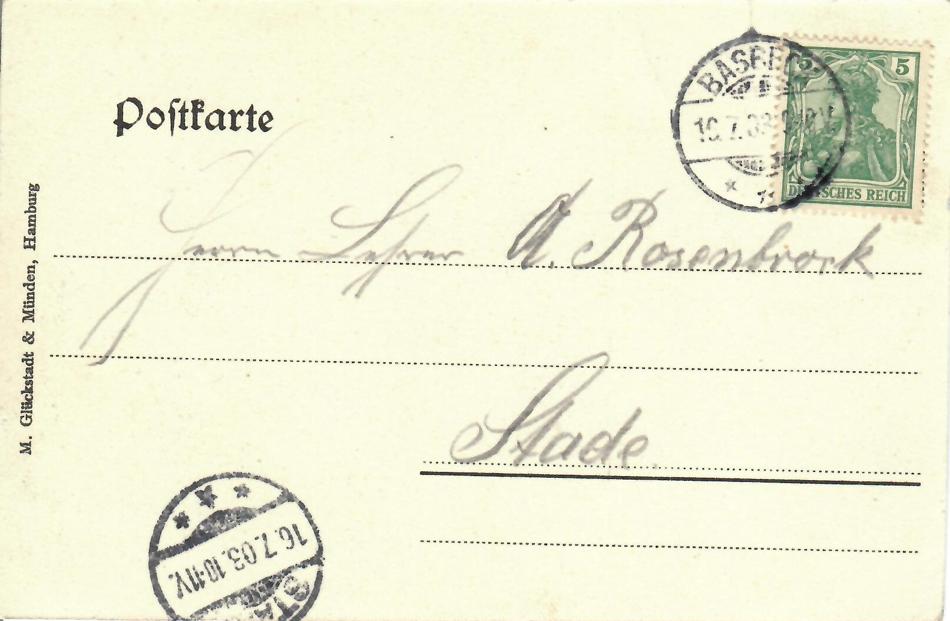 Postkarte
BASBECK
16.7.03
5
DEUTSCHES REICH
Herrn Lehrer A. Rosenbrock
Stade.
M. Glückstadt & Münden, Hamburg
16.7.03.10-11V.
STA